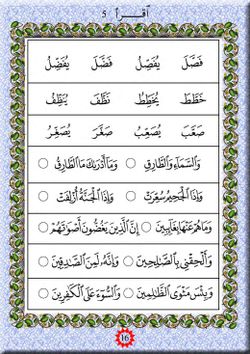 اقرأ 5
فَصَّلَ يُفَصِّلُ فَضَّلَ يُفَضِّلُ
خَطَّطَ يُخَطِّطُ نَظَّفَ يُنَظِّفُ
صَعَّبَ يُصَعِّبُ صَغَّرَ يُصَغِّرُ
وَالسَّمَاءِ وَالطَّارِقِ ○ وَمَا أَدْرَىٰكَ مَا الطَّارِقُ ○
وَإِذَا الْجَحِيمُ سُعِّرَتْ ○ وَإِذَا الْجَنَّةُ أُزْلِفَتْ ○
وَمَا هُمْ عَنْهَا بِغَائِبِينَ ○ إِنَّ الَّذِينَ يَغُضُّونَ أَصْوَٰتَهُمْ ○
وَأَلْحِقْنِي بِالصَّٰلِحِينَ ○ وَإِنَّهُ لَمِنَ الصَّٰدِقِينَ ○
وَبِئْسَ مَثْوَى الظَّٰلِمِينَ ○ وَالسُّوءَ عَلَى الْكَٰفِرِينَ ○
16